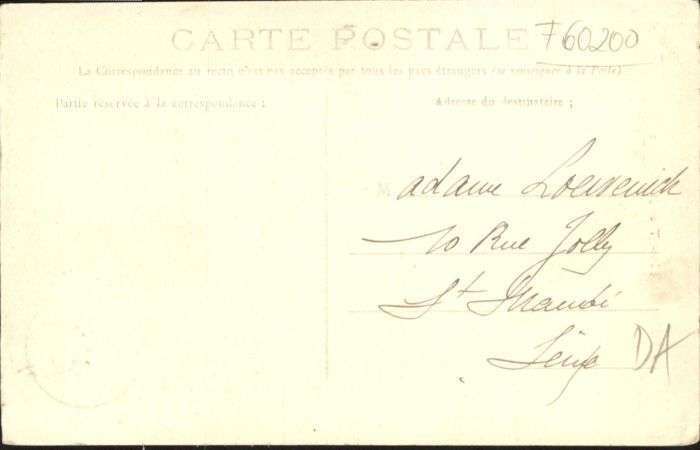 CARTE POSTALE
760200
La Correspondance au recto n'est pas acceptée par tous les pays étrangers (se renseigner à la Poste)
Partie réservée à la correspondance :
Adresse du destinataire ;
Madame Loewenich
10 Rue Jolly
St Mandé
Seine
DA